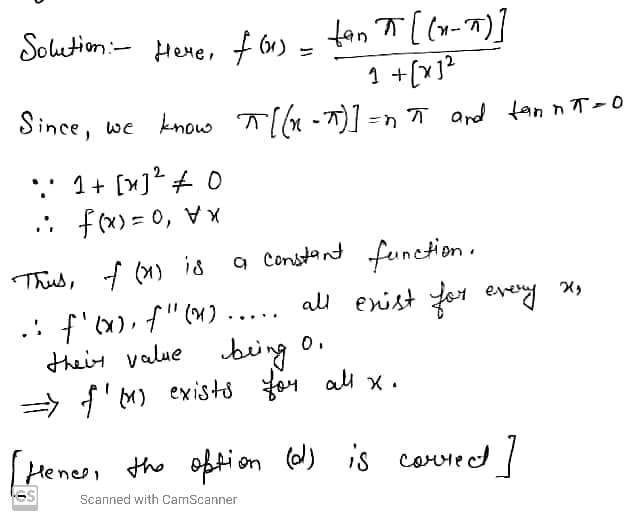 Solution:- Here, f(x) = tan π[(x-π)] / 1+[x]²
Since, we know π[(x-π)] = nπ and tan nπ=0
∵ 1+[x]² ≠ 0
∴ f(x) = 0, ∀ x
Thus, f(x) is a constant function.
∴ f'(x), f''(x) ..... all exist for every x,
their value being 0.
⇒ f'(x) exists for all x.
[Hence, the option (d) is correct]
CS Scanned with CamScanner